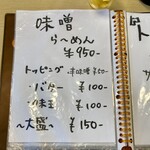 味噌
らーめん
¥950-
トッピング 辛味噌 ¥50-
・バター ¥100-
・味玉 ¥100-
〜大盛〜 ¥150-